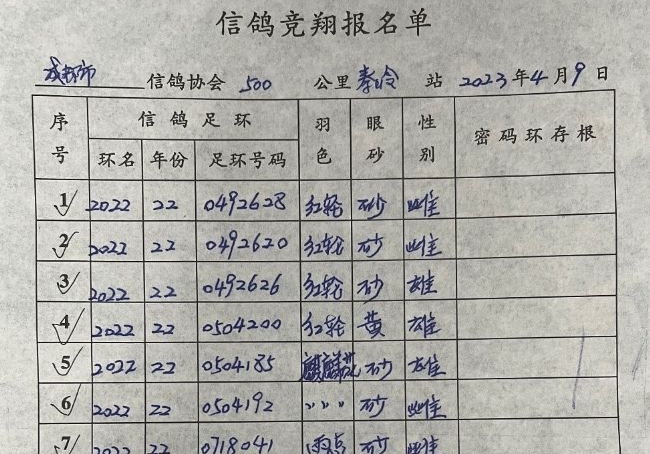 信鸽竞翔报名单
成都市 信鸽协会 500 公里 秦冷 站 2023年4月9日
序号 信鸽足环 羽色 眼砂 性别 密码环存根
环名 年份 足环号码
1 2022 22 0492628 红轮 砂 雌
2 2022 22 0492620 红轮 砂 雌
3 2022 22 0492626 红轮 砂 雄
4 2022 22 0504200 红轮 黄 雄
5 2022 22 0504185 麒麟花 砂 雄
6 2022 22 0504192 〃 〃 〃 砂 雌
7 2022 22 0718041 雨点 砂 雌